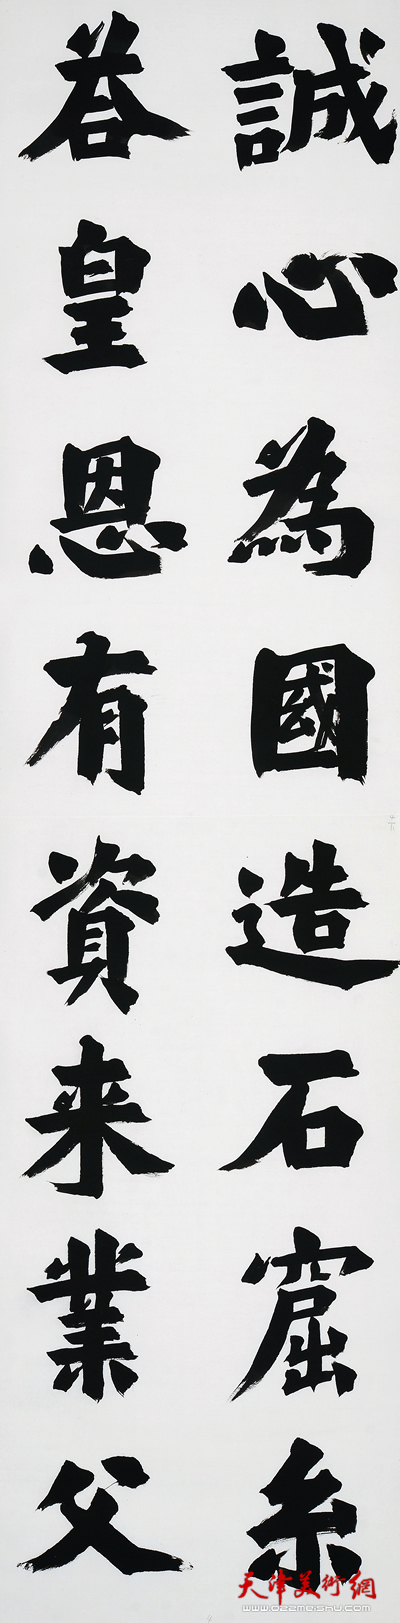 誠心為國造石窟糸
荅皇恩有資来業父
天津美術網
www.022meishu.com